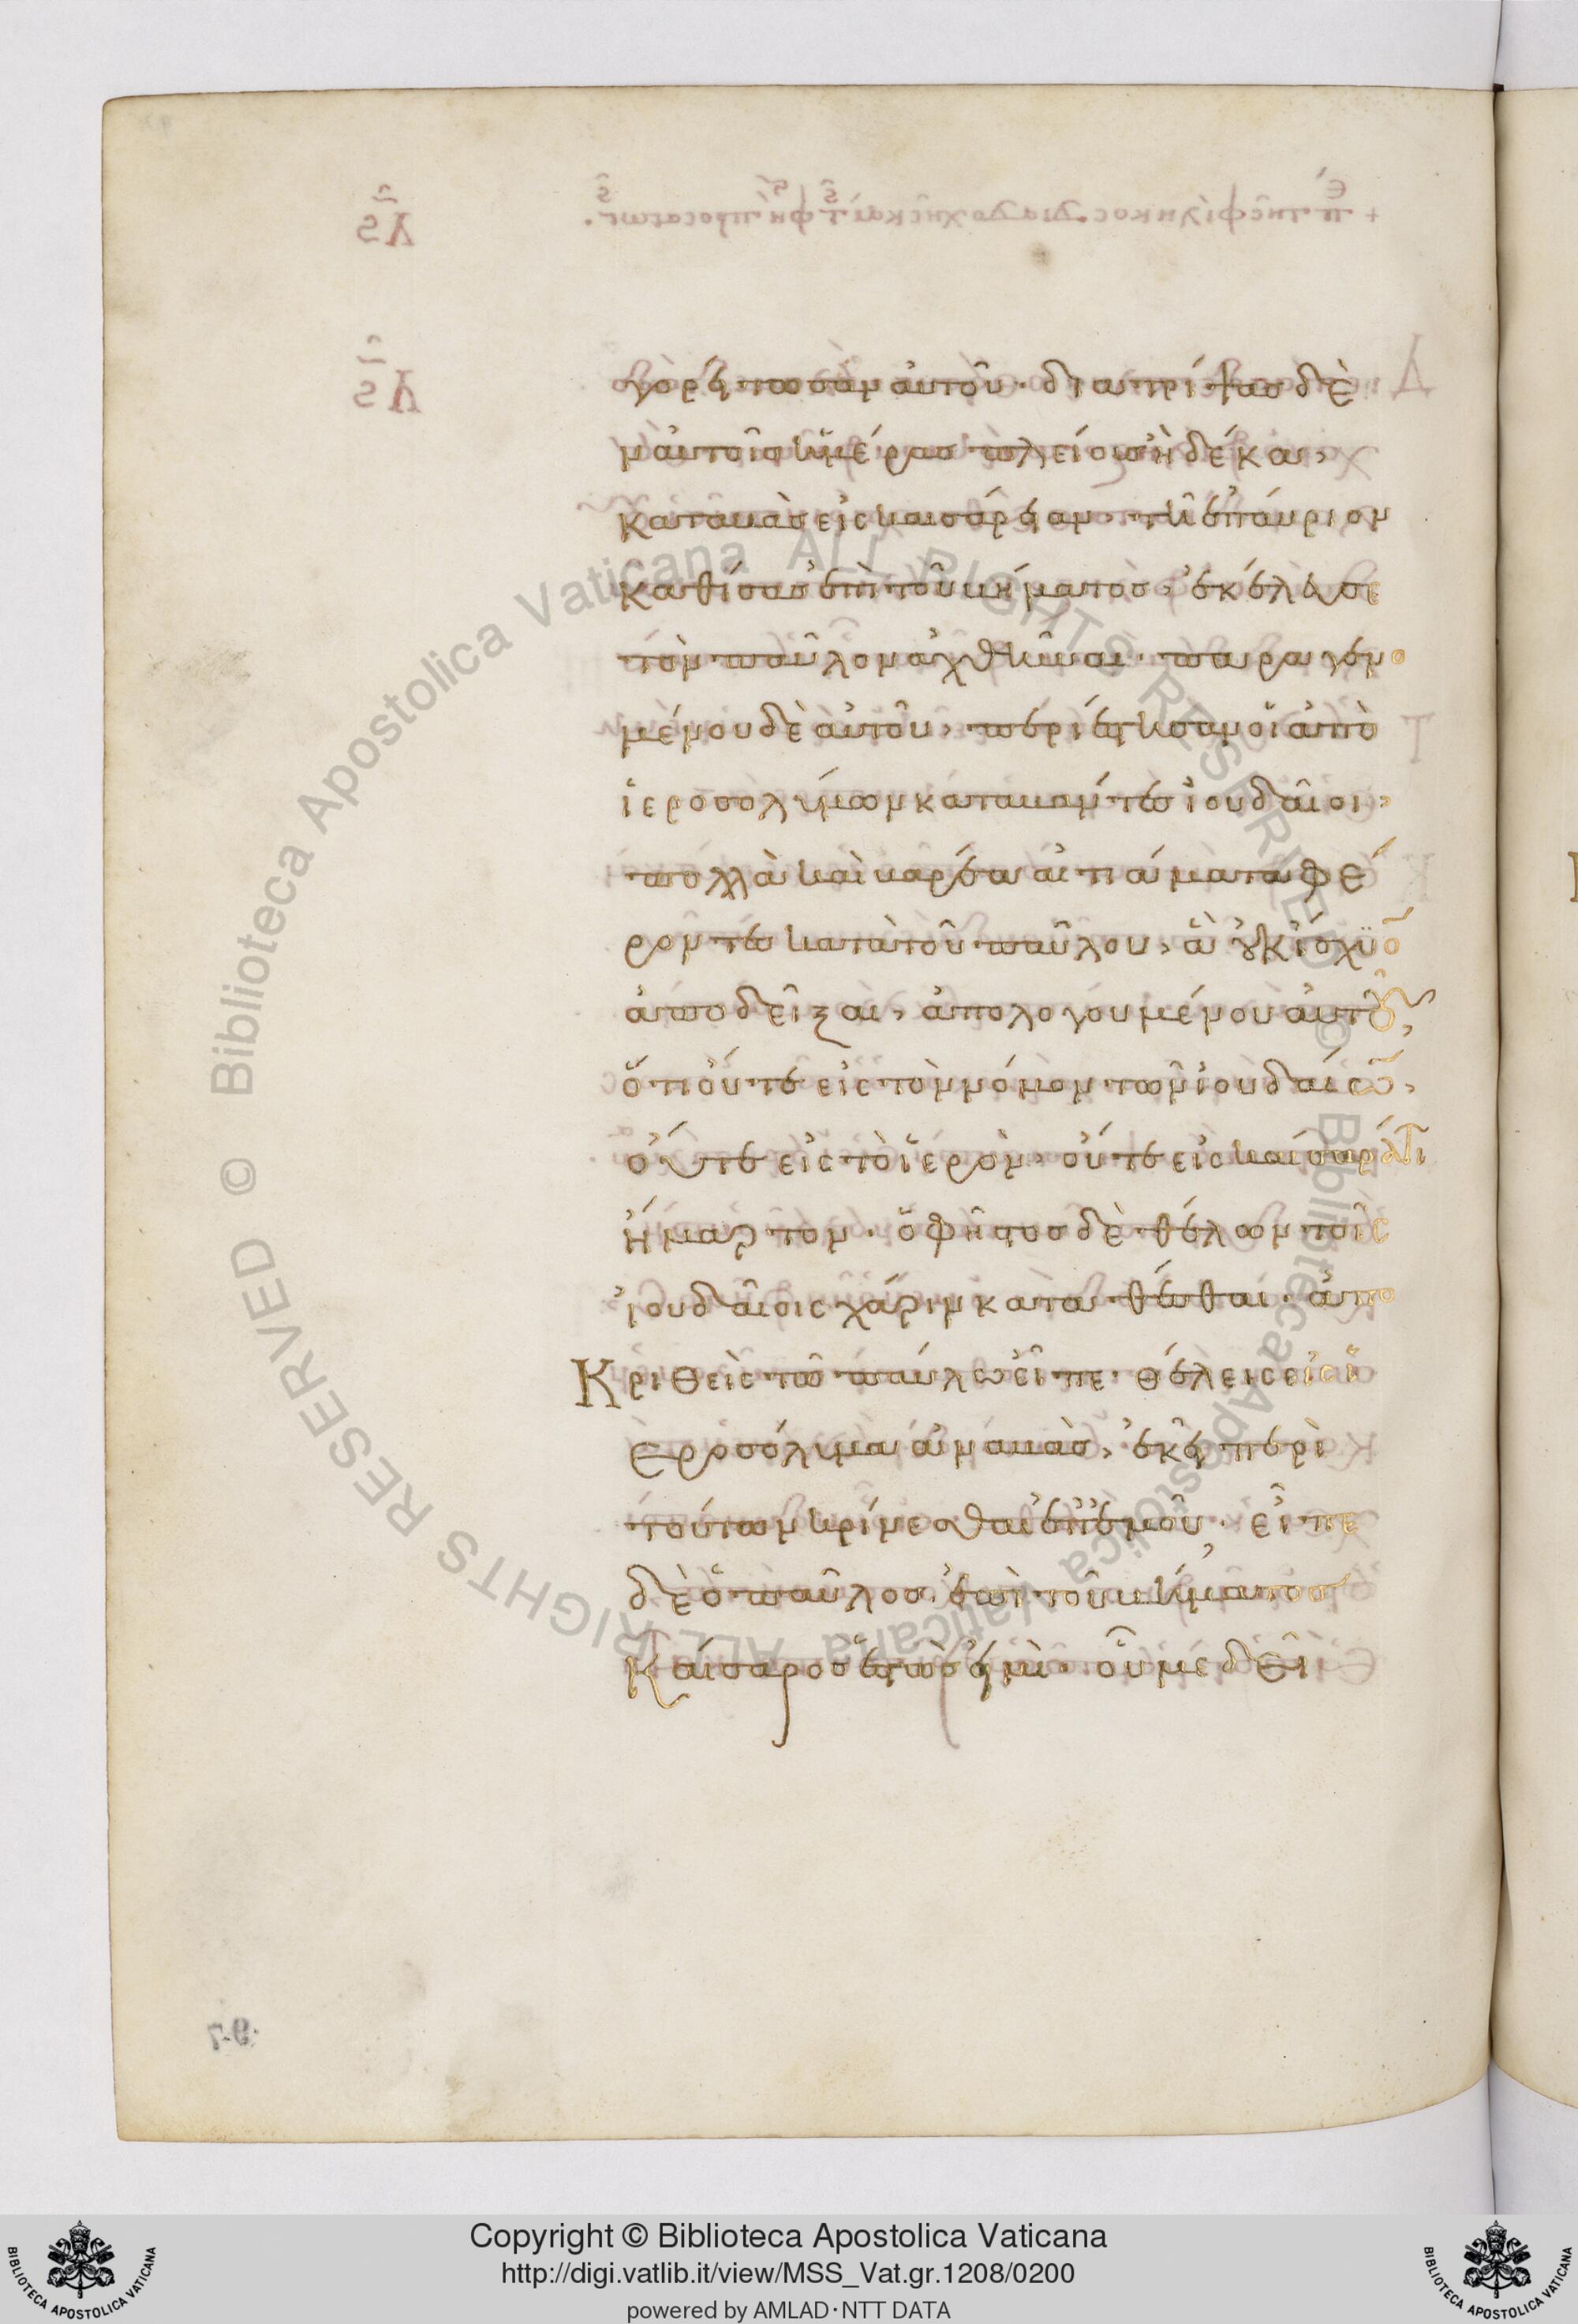 γορείτωσαν αὐτοῦ· διατρίψας δὲ
ν αὐτοῖς ἡμέρας πλείους ἢ δέκα,
καταβὰς εἰς καισάρειαν· τῆ ἐπάυριον
καθίσας ἐπὶ τοῦ βήματος, ἐκέλευσε
τὸν παῦλον ἀχθῆναι· παραγενο
μένου δὲ αὐτοῦ, περιέστησαν οἱ ἀπὸ
ἱεροσολύμων καταβάντες ἰουδαῖοι,
πολλὰ καὶ βαρέα αἰτιάματα φέ
ροντες κατὰ τοῦ παῦλου, ἃ οὐκ ἴσχυο
ἀποδεῖξαι, ἀπολογουμένου αὐτοῦ,
ὅτι οὔτε εἰς τὸν νόμον τῶν ἰουδαίω,
οὔτε εἰς τὸ ἱερὸν, οὔτε εἰς καίσαρά τι
ἥμαρτον· ὁ φῆστος δὲ θέλων τοῖς
ἰουδαῖοις χάριν καταθέσθαι· ἀπο
Κριθεὶς τῶ παύλω εἶπε· θέλεις εἰς ἱ
εροσόλυμα ἀναβὰς, ἐκεῖ περὶ
τούτων κρίνεσθαι ἐπ' ἐμοῦ, εἶπε
δὲ ὁ παῦλος, ἐπὶ τοῦ βήματος
Καίσαρος ἑστώς εἰμι· οὗ με δεῖ
Copyright © Biblioteca Apostolica Vaticana
http://digi.vatlib.it/view/MSS_Vat.gr.1208/0200
powered by AMLAD·NTT DATA
BIBLIOTECA APOSTOLICA VATICANA
BIBLIOTECA APOSTOLICA VATICANA
© Biblioteca Apostolica Vaticana ALL RIGHTS RESERVED © Biblioteca Apostolica Vaticana ALL RIGHTS RESERVED